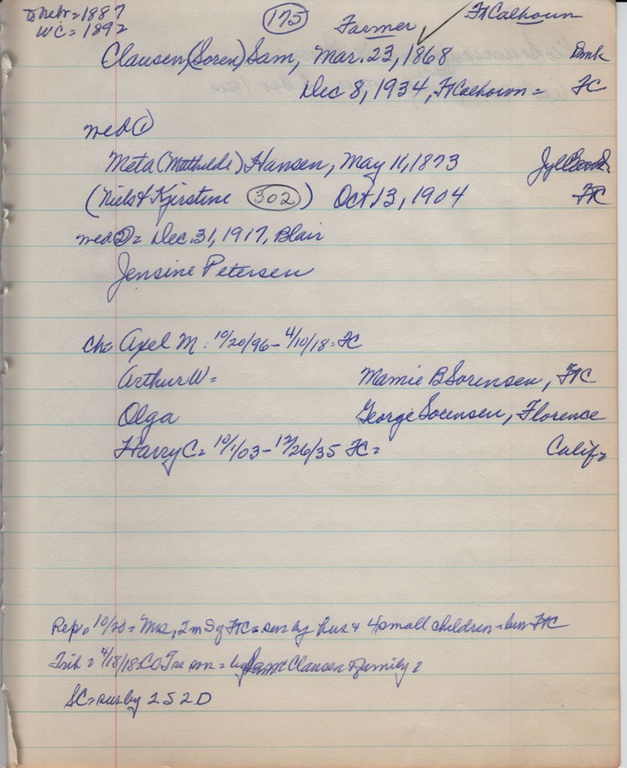 to Nebr=1887
WC=1892
175
Farmer, Ft Calhoun
Clausen (Soren) Sam, Mar. 23, 1868 Dmk
Dec 8, 1934, Ft Calhoun= FC
med ①
Meta (Mathilde) Hansen, May 11, 1873 Jyll
(Niels & Kjirstine 302) Oct. 13, 1904 FC
med ②= Dec. 31, 1917, Blair
Jensine Petersen
Ch= Axel M: 10/20/96-4/10/18= FC
Arthur W= Mamie B Sorensen, FC
Olga George Sorensen, Florence
Harry C= 10/1/03-12/26/35 FC= Calif=
Rep= 10/20= Mrs, 2 m S of FC= sur by hus & 4 small children= bur FC
Trib= 4/18/18= Sam Clausen & family=
SC= sur by 2S 2D